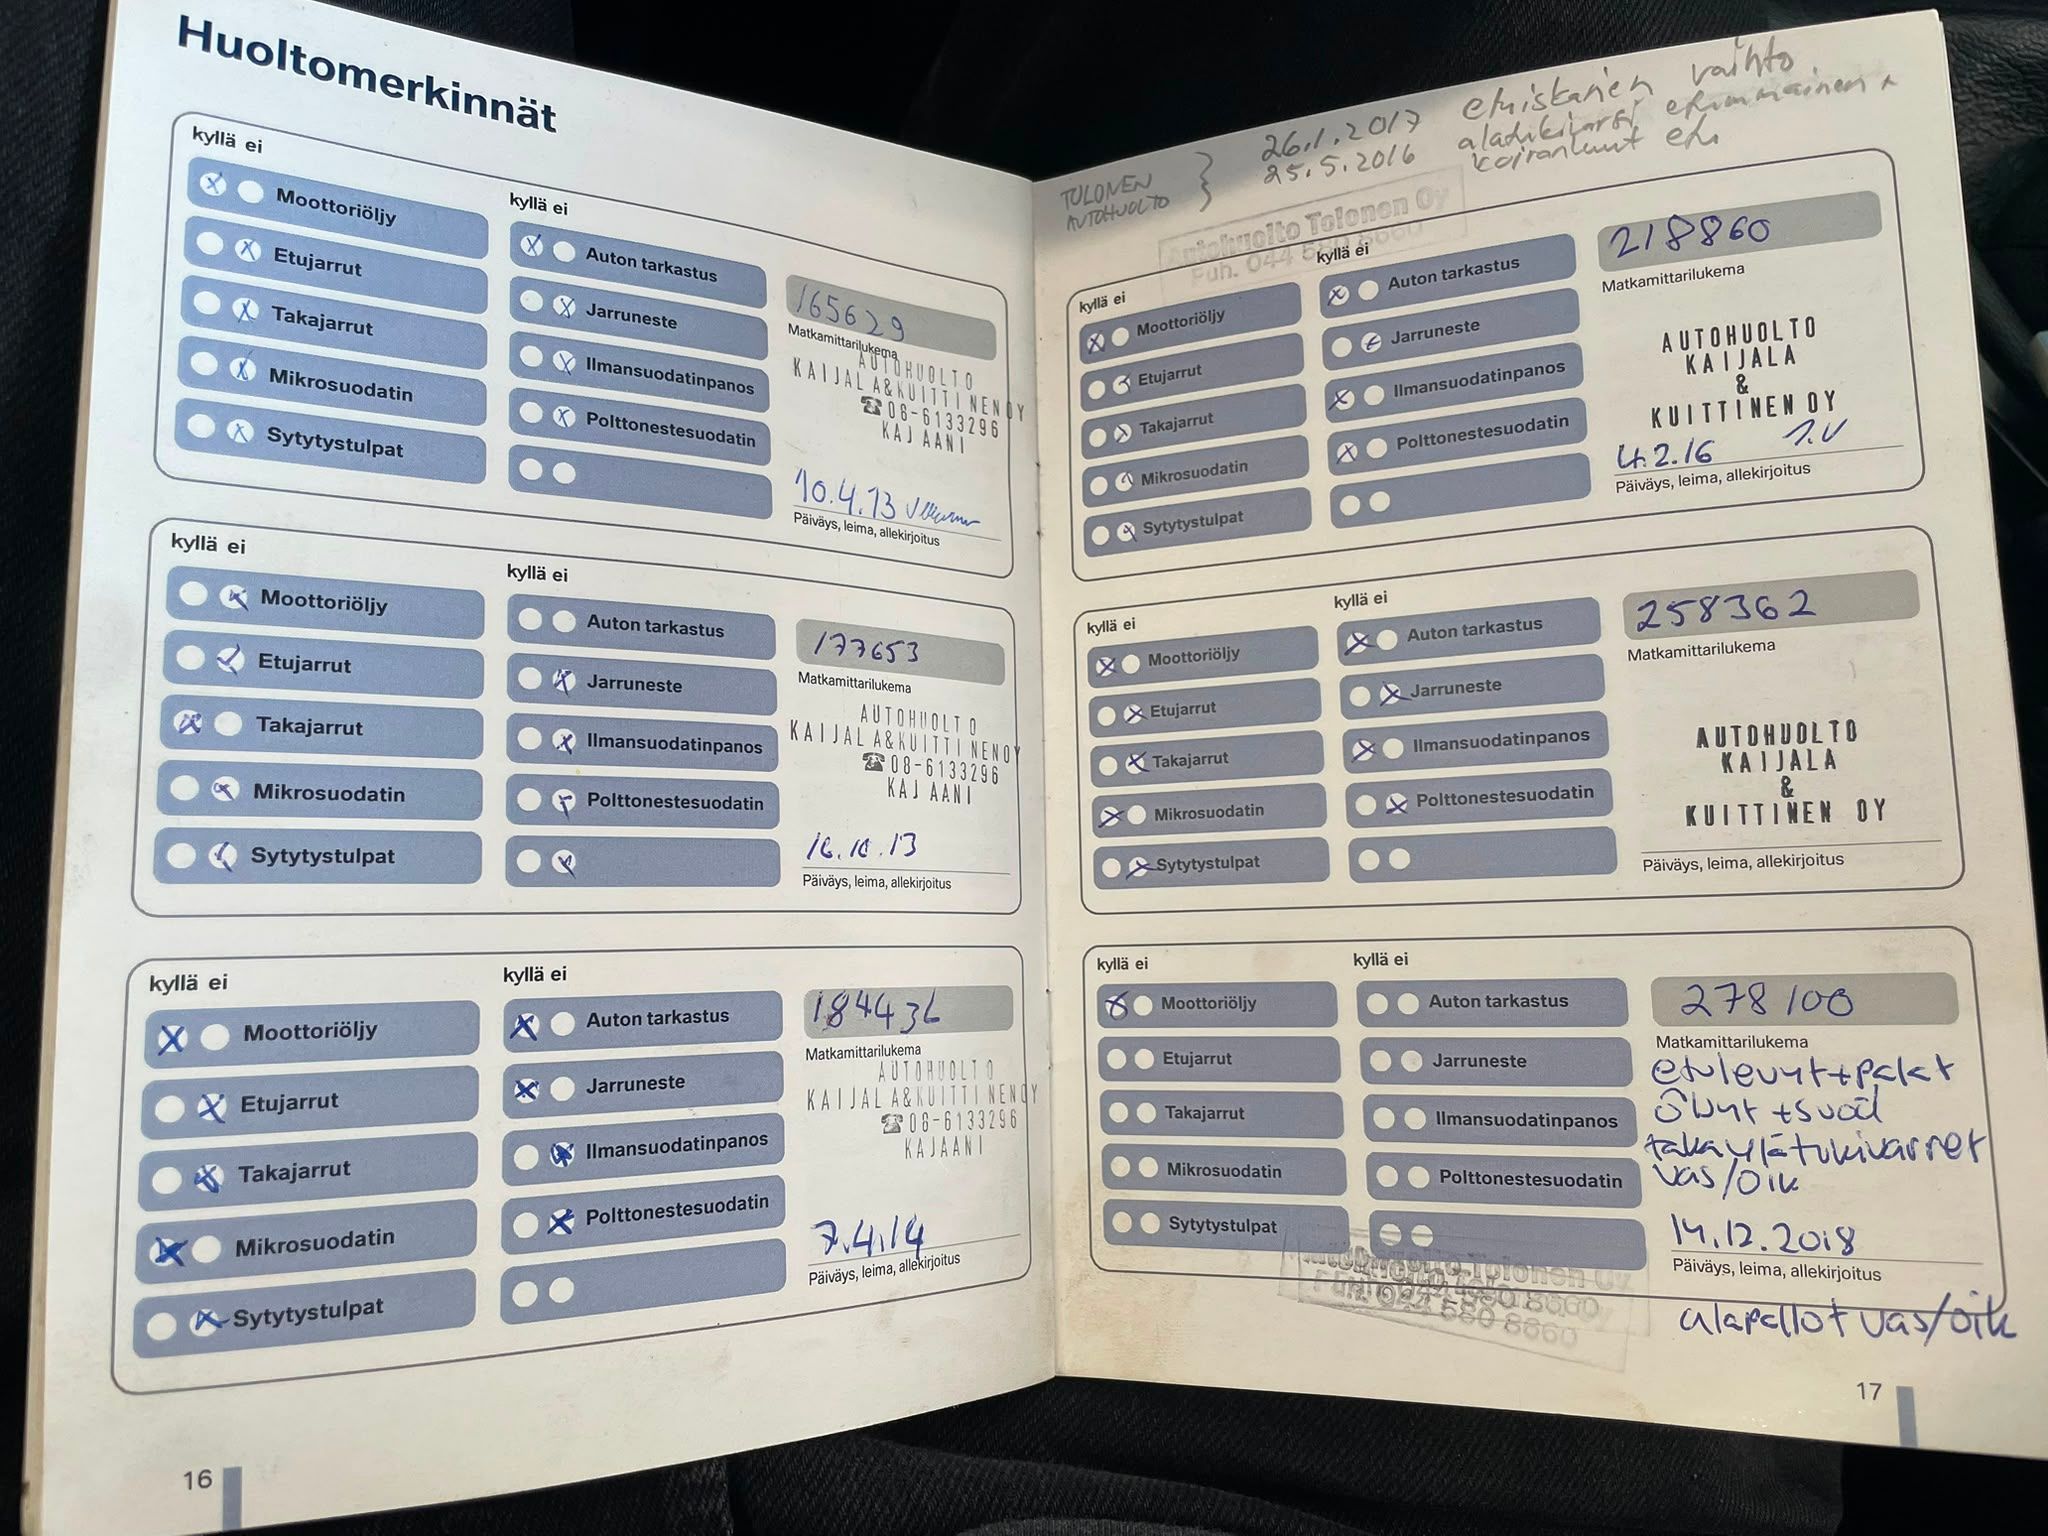 Huoltomerkinnät
kyllä ei
Moottoriöljy
Etujarrut
Takajarrut
Mikrosuodatin
Sytytystulpat
kyllä ei
Auton tarkastus
Jarruneste
Ilmansuodatinpanos
Polttonestesuodatin
165629
Matkamittarilukema
AUTOHUOLTO
KAIJALA&KUITTINEN OY
☎08-6133296
KAJAANI
10.4.13
Päiväys, leima, allekirjoitus
kyllä ei
Moottoriöljy
Etujarrut
Takajarrut
Mikrosuodatin
Sytytystulpat
kyllä ei
Auton tarkastus
Jarruneste
Ilmansuodatinpanos
Polttonestesuodatin
177653
Matkamittarilukema
AUTOHUOLTO
KAIJALA&KUITTINEN OY
☎08-6133296
KAJAANI
16.10.13
Päiväys, leima, allekirjoitus
kyllä ei
Moottoriöljy
Etujarrut
Takajarrut
Mikrosuodatin
Sytytystulpat
kyllä ei
Auton tarkastus
Jarruneste
Ilmansuodatinpanos
Polttonestesuodatin
184436
Matkamittarilukema
AUTOHUOLTO
KAIJALA&KUITTINEN OY
☎08-6133296
KAJAANI
7.4.14
Päiväys, leima, allekirjoitus
16
TOLONEN
AUTOHUOLTO
26.1.2017 etuiskarien vaihto
25.5.2016 alatukivarsi etummainen
koiranluut etu
Autohuolto Tolonen Oy
Puh. 044 580 8660
kyllä ei
Moottoriöljy
Etujarrut
Takajarrut
Mikrosuodatin
Sytytystulpat
kyllä ei
Auton tarkastus
Jarruneste
Ilmansuodatinpanos
Polttonestesuodatin
218860
Matkamittarilukema
AUTOHUOLTO
KAIJALA
&
KUITTINEN OY
4.2.16
Päiväys, leima, allekirjoitus
kyllä ei
Moottoriöljy
Etujarrut
Takajarrut
Mikrosuodatin
Sytytystulpat
kyllä ei
Auton tarkastus
Jarruneste
Ilmansuodatinpanos
Polttonestesuodatin
258362
Matkamittarilukema
AUTOHUOLTO
KAIJALA
&
KUITTINEN OY
Päiväys, leima, allekirjoitus
kyllä ei
Moottoriöljy
Etujarrut
Takajarrut
Mikrosuodatin
Sytytystulpat
kyllä ei
Auton tarkastus
Jarruneste
Ilmansuodatinpanos
Polttonestesuodatin
278100
Matkamittarilukema
etulevyt+palat
öljyt+suod
takaylätukivarret
vas/oik
14.12.2018
Päiväys, leima, allekirjoitus
alapallot vas/oik
Autohuolto Tolonen Oy
Puh. 044 580 8660
17